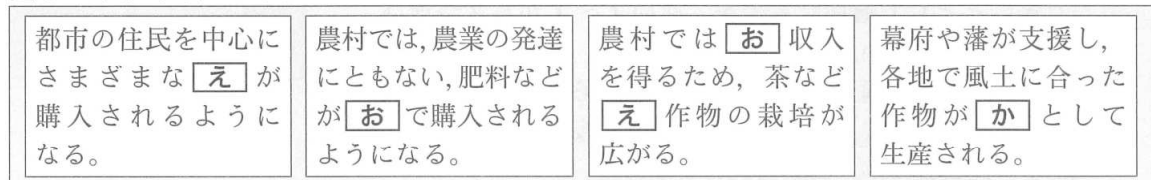 都市の住民を中心に
さまざまな え が
購入されるように
なる。
農村では,農業の発達
にともない,肥料など
が お で購入される
ようになる。
農村では お 収入
を得るため，茶など
え 作物の栽培が
広がる。
幕府や藩が支援し,
各地で風土に合った
作物が か として
生産される。